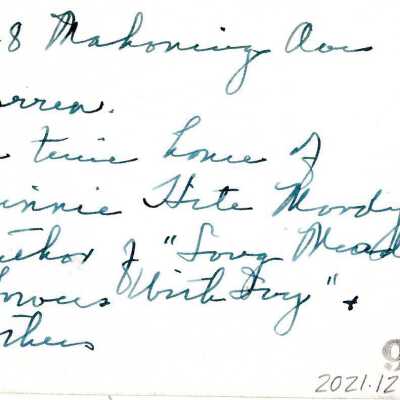 8 Mahoning Ave
rren.
time home of
innie Hite Moody
uthor of "Long Mead
" +
thers
2021.12